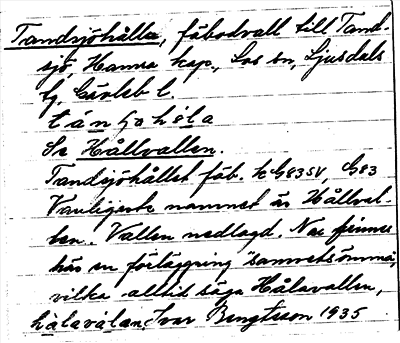 Tandsjöhålla, fäbodvall till Tand-
sjö, Hamra kap., Los sn, Ljusdals
Gävleb l.
tánʃohȯla
Se Hållvallen.
Tandsjöhållet fäb. k G83SV, G83
Vanligaste namnet är Hållval-
len. Vallen nedlagd. Nu finnes
här en förläggning
vilka alltid säga Hålavallen,
hålavälan Ivar Bengtsson 1935